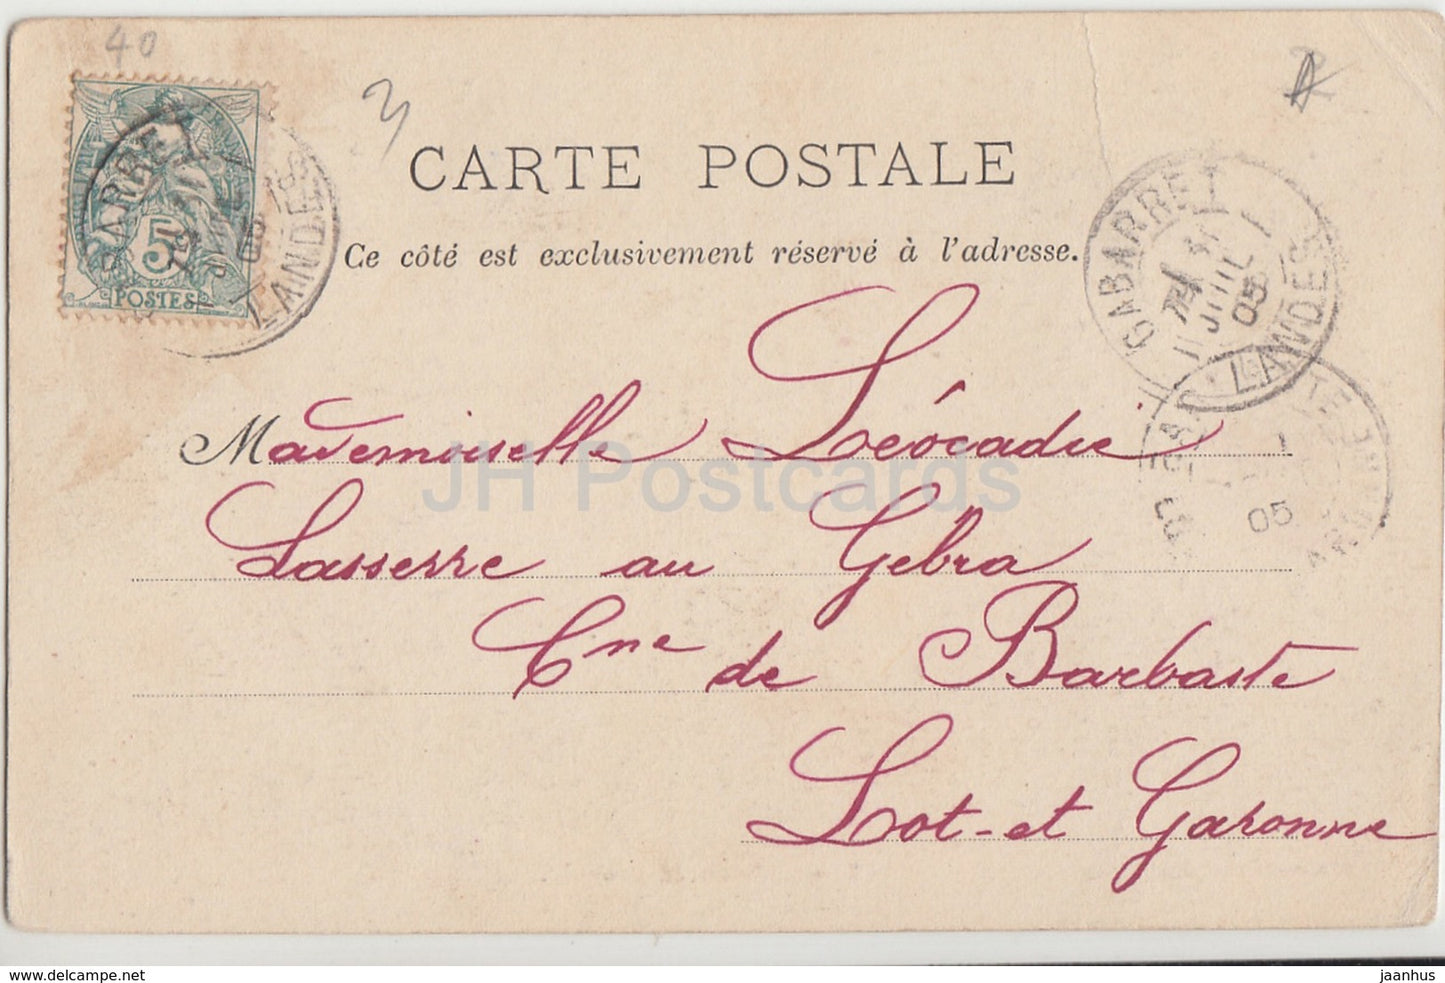 40
3
5
POSTES
GABARRET
LANDES
CARTE POSTALE
Ce côté est exclusivement réservé à l'adresse.
GABARRET
JUIL
05
LANDES
05
Mademoiselle Léocadie
Lasserre au Gebra
Cne de Barbaste
Lot-et Garonne
JH Postcards
delcampe.net
jaanhus